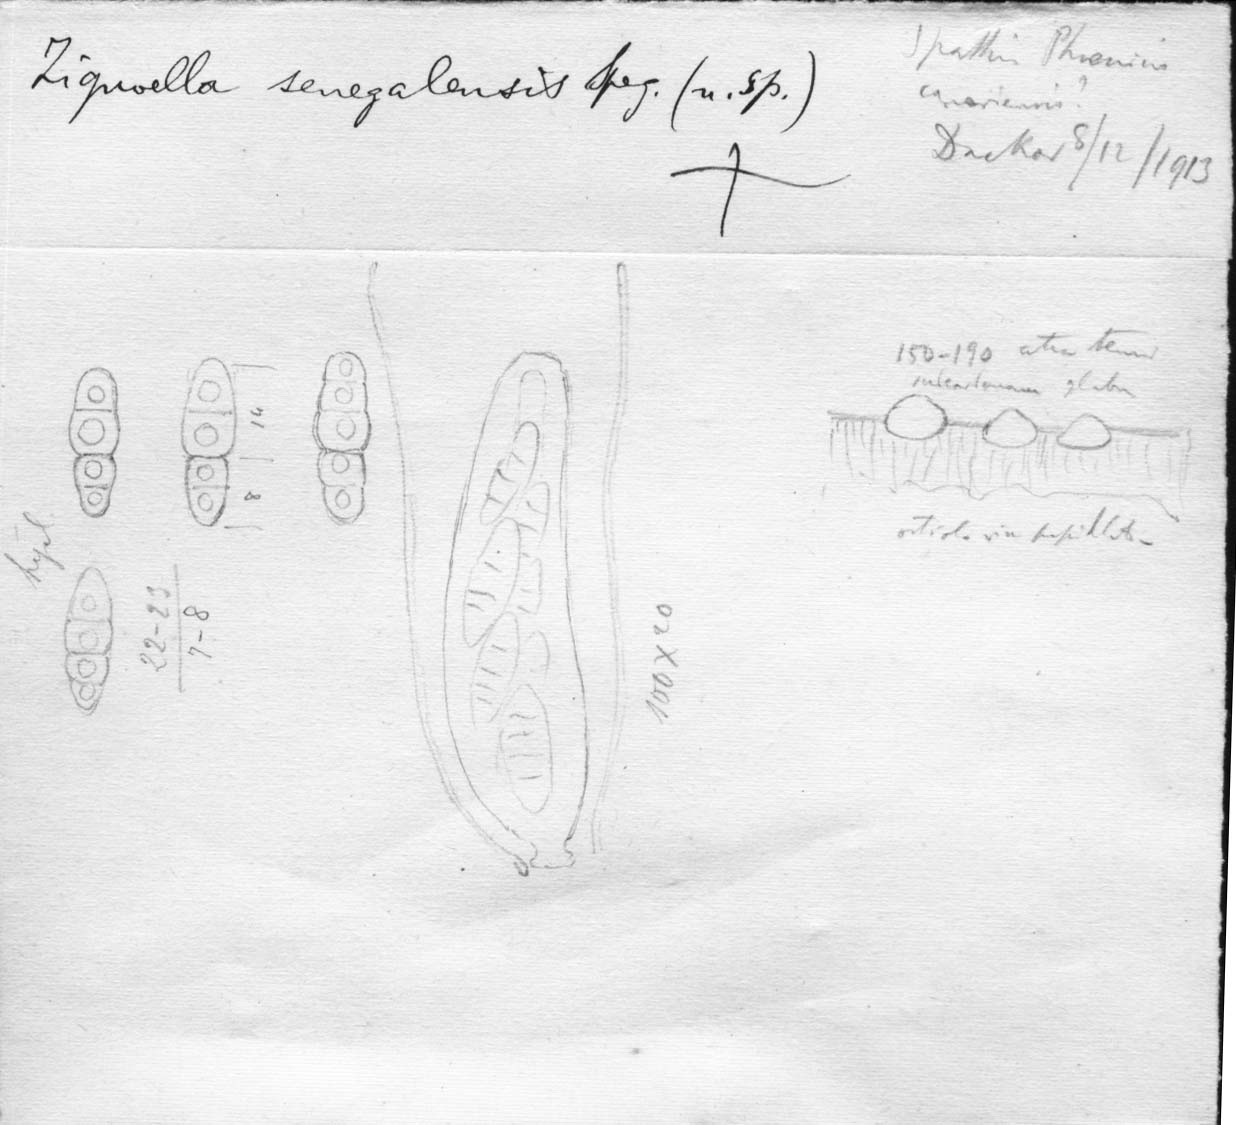 Zignoella senegalensis Speg. (n. sp.)
Spathis Phoenicis
canariensis?
Dackar 8/12/1913
150-190 atra tenui
glabra
14
8
hyal
22-23
7-8
100 x 20
ostiolo vix papillato